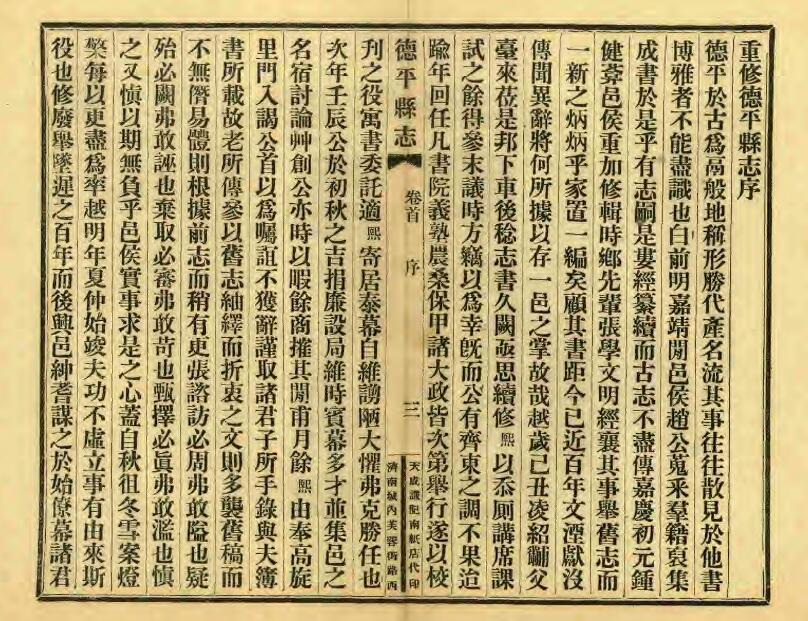 重修德平縣志序
德平於古爲鬲般地稱形勝代產名流其事往往散見於他書
博雅者不能盡識也自前明嘉靖間邑侯趙公蒐釆羣籍裒集
成書於是乎有志嗣是婁經纂續而古志不盡傳嘉慶初元鍾
健葊邑侯重加修輯時鄉先輩張學文明經襄其事舉舊志而
一新之炳炳乎家置一編矣顧其書距今已近百年文湮獻沒
傳聞異辭將何所據以存一邑之掌故哉越歲己丑凌紹黼父
臺來莅是邦下車後稔志書久闕亟思續修熙以忝厕講席課
試之餘得參末議時方竊以爲幸旣而公有齊東之調不果迨
踰年回任凡書院義塾農桑保甲諸大政皆次第舉行遂以校
德平縣志
卷首
序
三
天成謙記南紙店代印
濟南城內芙蓉街路西
刋之役寓書委託適熙寄居泰幕自維謭陋大懼弗克勝任也
次年壬辰公於初秋之吉捐廉設局維時賓幕多才並集邑之
名宿討論艸創公亦時以暇餘商搉其閒甫月餘熙由奉高旋
里門入謁公首以爲囑誼不獲辭謹取諸君子所手錄與夫簿
書所載故老所傳參以舊志紬繹而折衷之文則多襲舊稿而
不無僭易體則根據前志而稍有更張諮訪必周弗敢隘也疑
殆必闕弗敢誣也棄取必審弗敢苛也甄擇必眞弗敢濫也愼
之又愼以期無負乎邑侯實事求是之心蓋自秋徂冬雪案燈
檠每以更盡爲率越明年夏仲始竣夫功不虛立事有由來斯
役也修廢舉墜遲之百年而後興邑紳耆謀之於始僚幕諸君